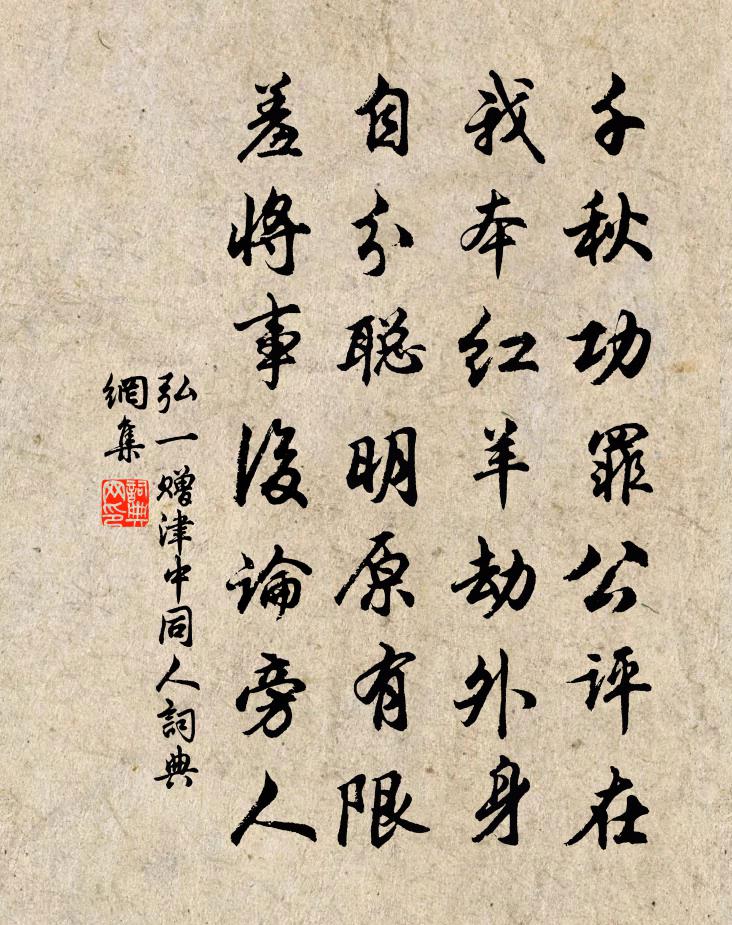 千秋功罪公評在
我本紅羊劫外身
自分聰明原有限
羞將事後論旁人
弘一贈津中同人詞典
網集
詞典
网印